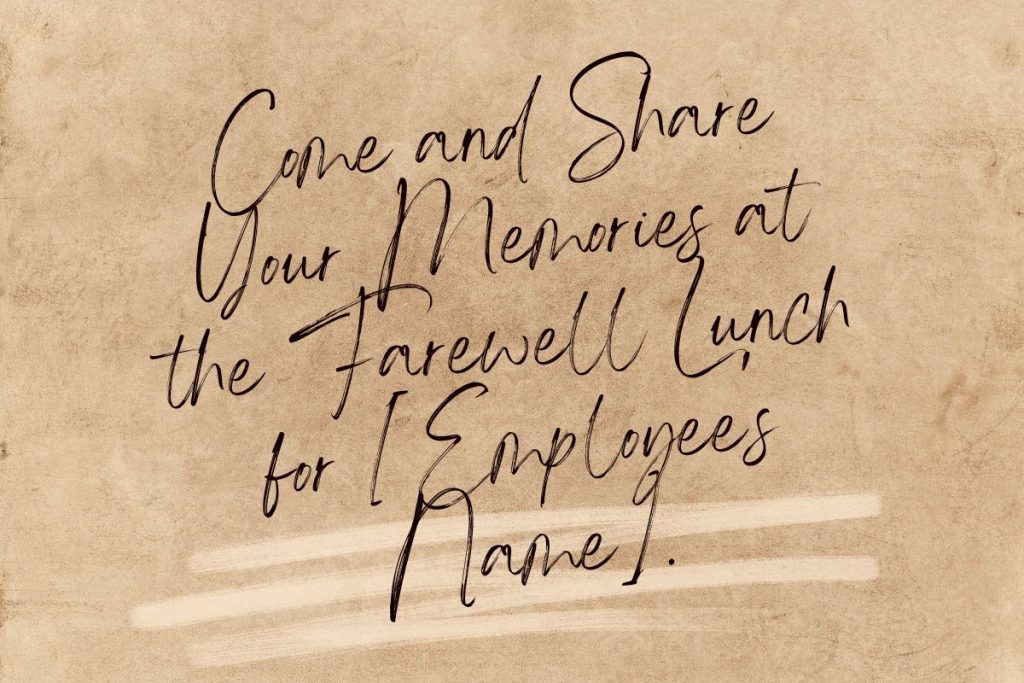 Come and Share
Your Memories at
the Farewell Lunch
for [Employees
Name].